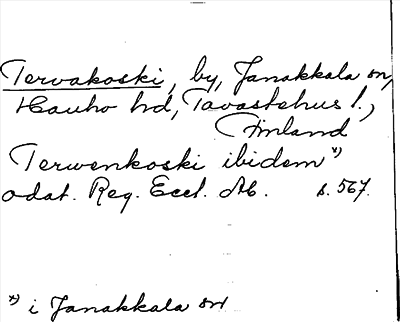 Tervakoski, by, Janakkala sn,
Hauho hd, Tavastehus l.,
Finland
Terwenkoski ibidem *)
odat. Reg. Eccl. Ab. s. 567.
*) i Janakkala sn